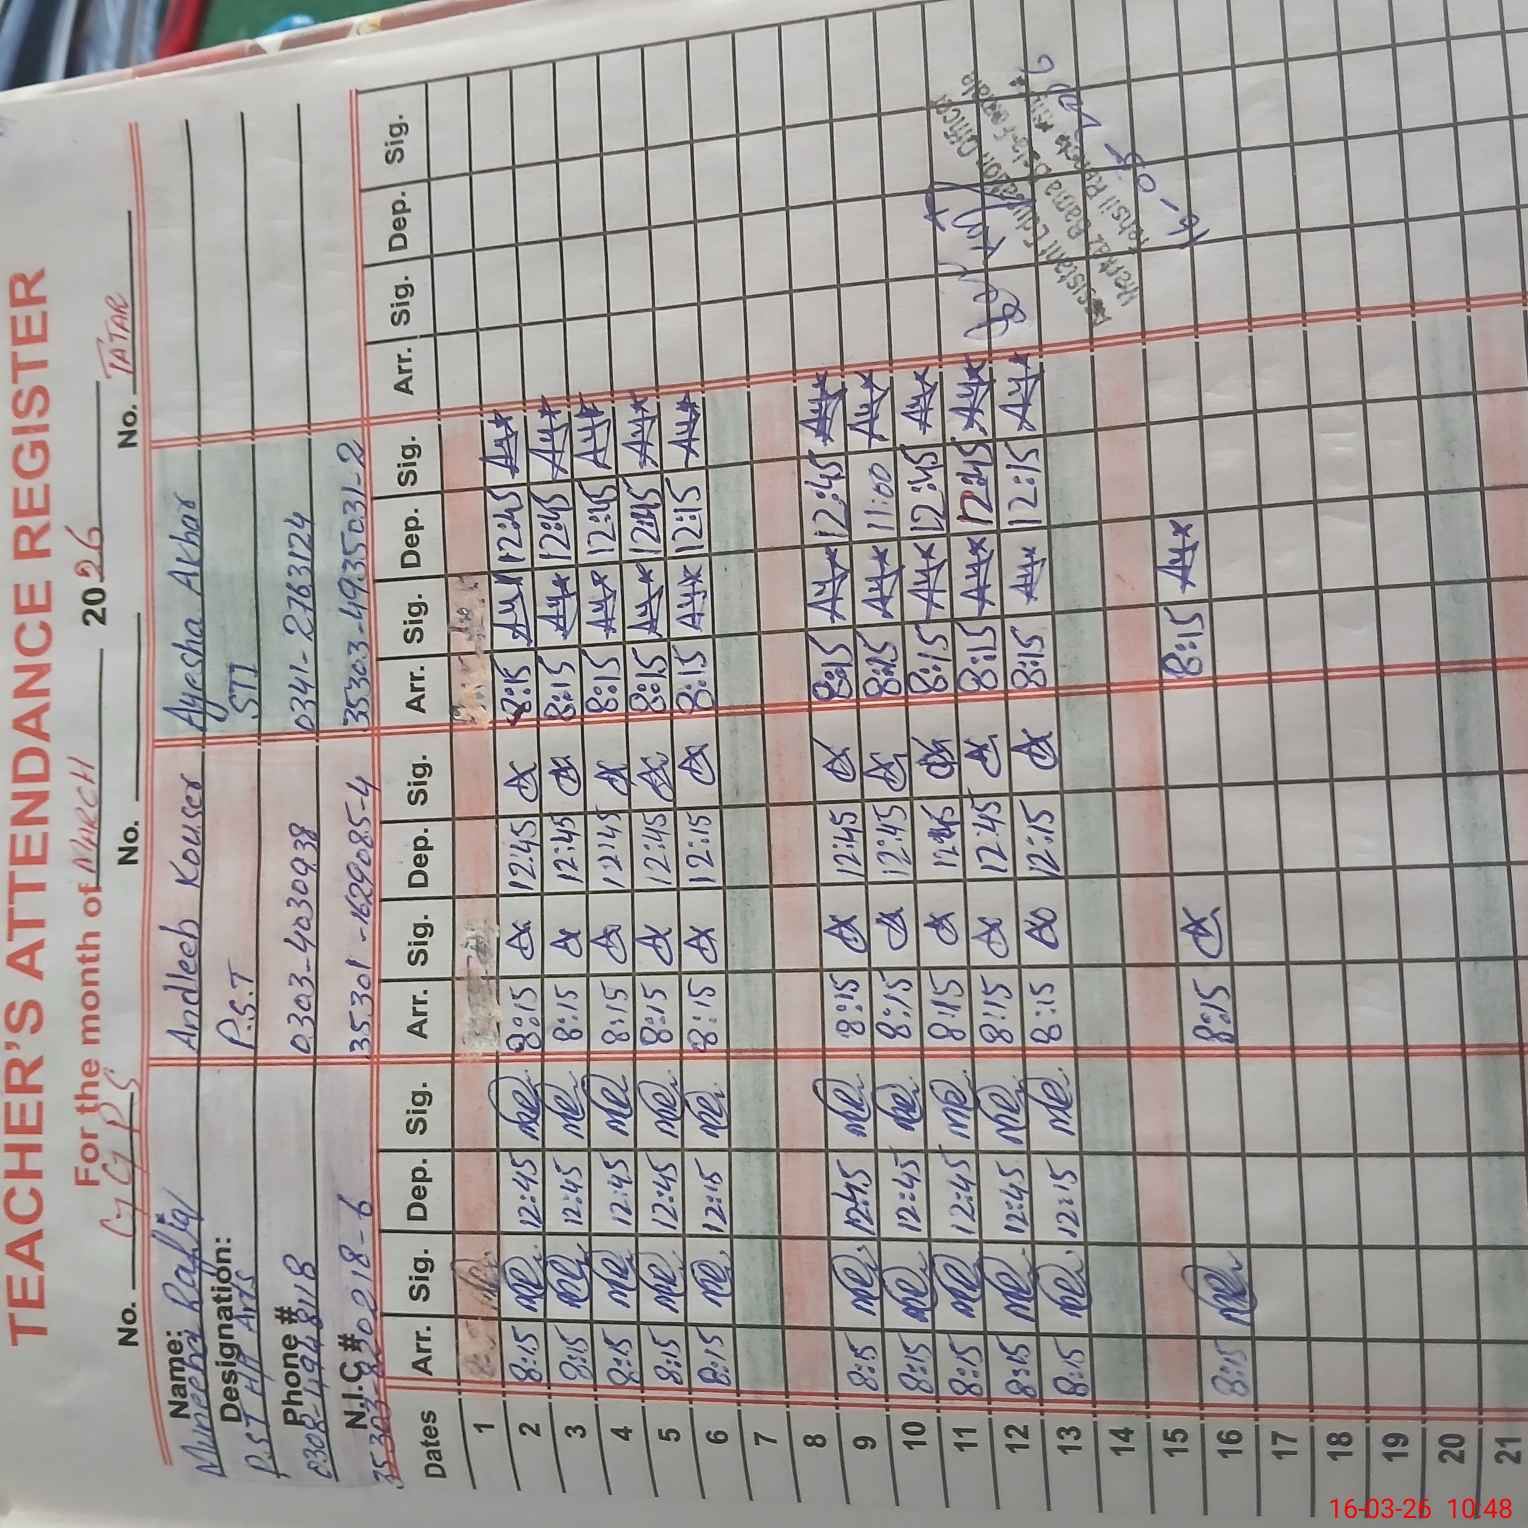 TEACHER'S ATTENDANCE REGISTER
For the month of MARCH 2026
No. G G P S No. No. TATAR
Name: Muneeba Rafiq Andleeb Kouser Ayesha Akbar
Designation: P.S.T P.S.T STI
Phone # 0308-4948118 0303-4030938 0341-2763124
N.I.C # 35301-1629085-4 35303-4935031-2
Dates Arr. Sig. Dep. Sig. Arr. Sig. Dep. Sig. Arr. Sig. Dep. Sig. Arr. Sig. Dep. Sig.
1
2 8:15 12:45 8:15 12:45 8:15 12:45
3 8:15 12:45 8:15 12:45 8:15 12:45
4 8:15 12:45 8:15 12:45 8:15 12:45
5 8:15 12:45 8:15 12:45 8:15 12:45
6 8:15 12:15 8:15 12:15 8:15 12:15
7
8
9 8:15 12:45 8:15 12:45 8:15 12:45
10 8:15 12:45 8:15 12:45 8:15 11:00
11 8:15 12:45 8:15 12:45 8:15 12:45
12 8:15 12:45 8:15 12:45 8:15 12:45
13 8:15 12:15 8:15 12:15 8:15 12:15
14
15
16 8:15 8:15 8:15
17
18
19
20
21
Assistant Education Officer
Tehsil
16-03-2026
16-03-26 10:48